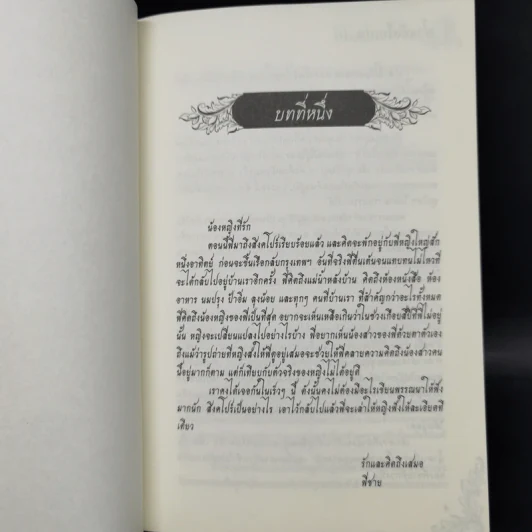 บทที่หนึ่ง
น้องหญิงที่รัก
ตอนนี้พี่มาถึงสิงคโปร์เรียบร้อยแล้ว และคิดจะพักอยู่กับพี่หญิงใหญ่สัก
หนึ่งอาทิตย์ ก่อนจะขึ้นเรือกลับกรุงเทพฯ อันที่จริงพี่ตื่นเต้นจนแทบทนไม่ไหวที่
จะได้กลับไปอยู่บ้านเราอีกครั้ง พี่คิดถึงแม่น้ำหลังบ้าน คิดถึงห้องหนังสือ ห้อง
อาหาร นมปรุง ป้าอิ่ม ลุงน้อย และทุกๆ คนที่บ้านเรา ที่สำคัญกว่าอะไรทั้งหมด
พี่คิดถึงน้องหญิงของพี่เป็นที่สุด อยากจะเห็นเหลือเกินว่าในช่วงเกือบสิบปีที่พี่ไม่อยู่
นั้น หญิงจะเปลี่ยนแปลงไปอย่างไรบ้าง พี่อยากเห็นน้องสาวของพี่ด้วยตาตัวเอง
ถึงแม้ว่ารูปถ่ายที่หญิงส่งให้พี่ดูอยู่เสมอจะช่วยให้พี่คลายความคิดถึงน้องสาวคน
นี้อยู่มากก็ตาม แต่ก็เทียบกับตัวจริงของหญิงไม่ได้อยู่ดี
เราคงได้เจอกันในเร็วๆ นี้ ดังนั้นคงไม่ต้องมีอะไรเขียนพรรณนาให้ฟัง
มากนัก สิงคโปร์เป็นอย่างไร เอาไว้กลับไปแล้วพี่จะเล่าให้หญิงฟังให้ละเอียดที
เดียว
รักและคิดถึงเสมอ
พี่ชาย